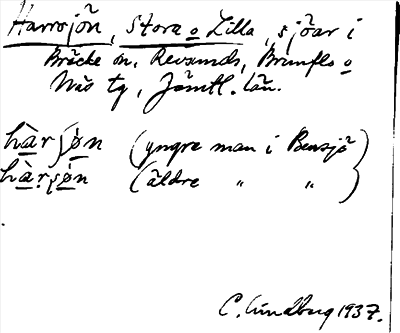 Harrsjön, Stora o Lilla, sjöar i
Bräcke sn, Revsunds, Brunflo o
Näs tg, Jämtl. län.
hàrʃø̀n (yngre man i Bensjö)
hàrşø̀n (äldre " ")
C. Lindberg 1937.